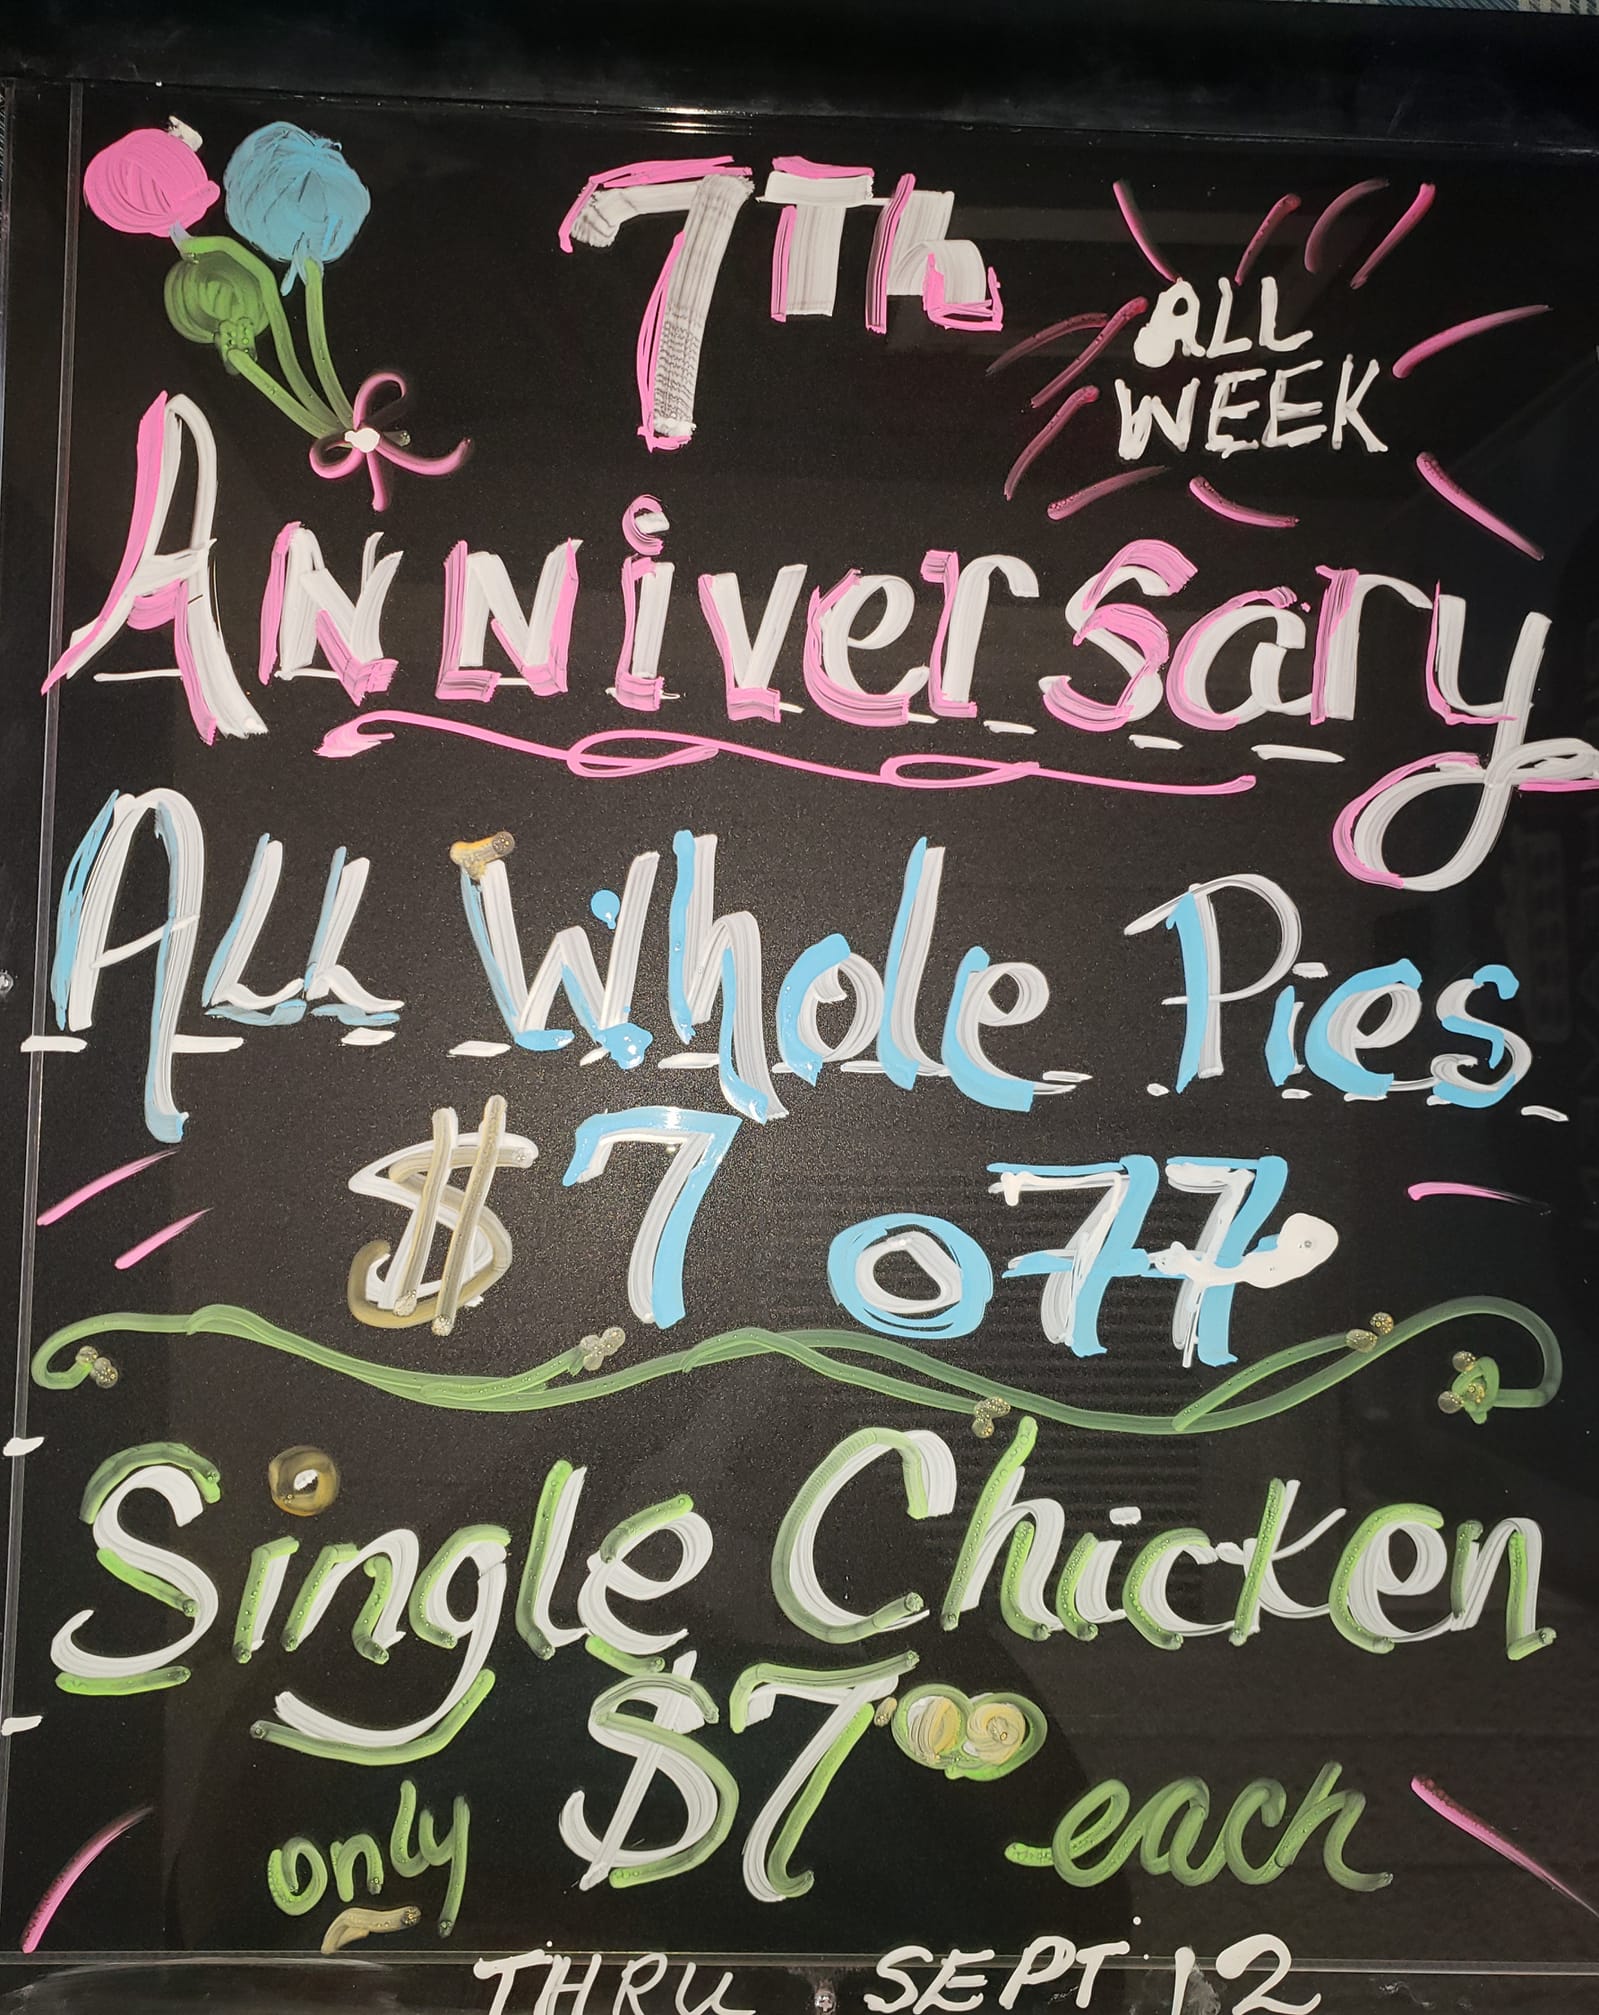 7Th
ALL
WEEK
Anniversary
All Whole Pies
$7 off
Single Chicken
only $7.00 each
THRU SEPT. 12